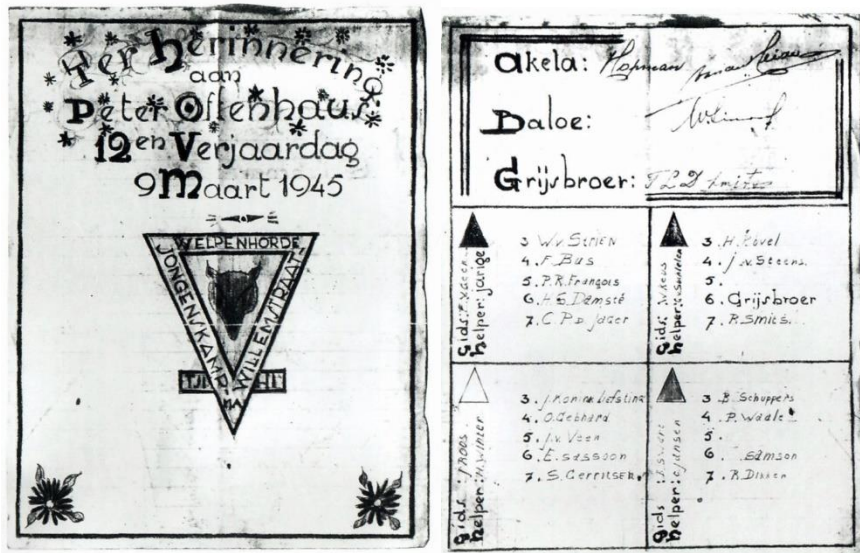 Ter herinnering
aan
Peter Ostenhaus'
12en Verjaardag
9 Maart 1945
WELPENHORDE
JONGENSKAMP
WILLEMSTRAAT
Akela: Hopman
Baloe:
Grijsbroer:
Gids:
helper: jarige
3 W.v. STRIEN
4. F. Bus
5. P.R. François
6. H.S. Damsté
7. C.P.D. Jager
Gids:
helper:
3. H. Povel
4. J.v. Steens
5.
6. Grijsbroer
7. R. Smies.
Gids: J Roos
helper: M. Winter
3. J. Konink
4. O. Gebhard
5. J.v. Veen
6. E. Sassoon
7. S. Gerritsen
Gids:
helper: C. Jansen
3 B. Schuppers
4 P. Waale
5.
6. Samson
7. R. Dikken